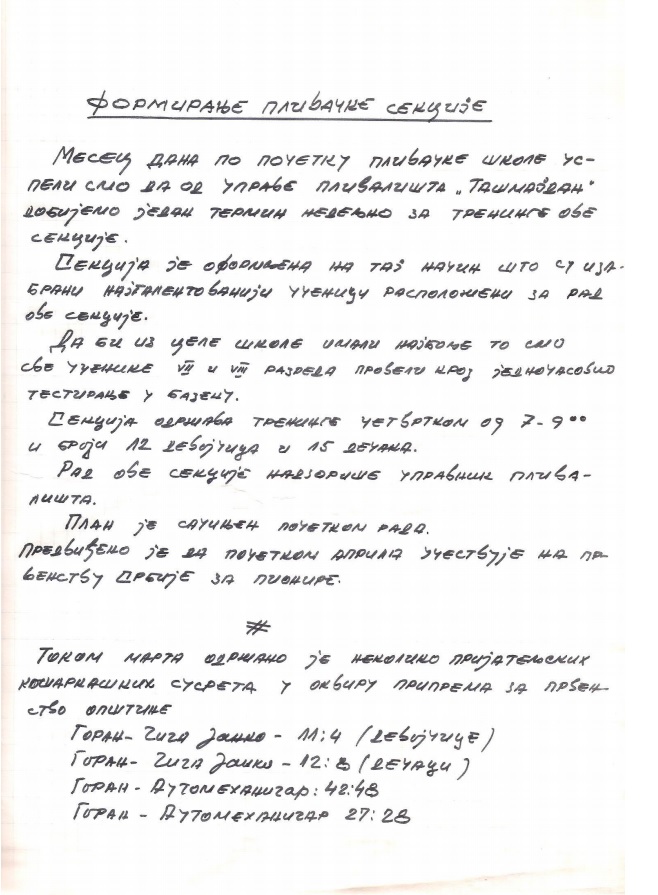 ФОРМИРАЊЕ ПЛИВАЧКЕ СЕКЦИЈЕ
МЕСЕЦ ДАНА ПО ПОЧЕТКУ ПЛИВАЧКЕ ШКОЛЕ УС-
ПЕЛИ СМО ДА ОД УПРАВЕ ПЛИВАЛИШТА „ТАШМАЈДАН"
ДОБИЈЕМО ЈЕДАН ТЕРМИН НЕДЕЉНО ЗА ТРЕНИНГЕ ОВЕ
СЕКЦИЈЕ.
СЕКЦИЈА ЈЕ ОФОРМЉЕНА НА ТАЈ НАЧИН ШТО СУ ИЗА-
БРАНИ НАЈТАЛЕНТОВАНИЈИ УЧЕНИЦИ РАСПОЛОЖЕНИ ЗА РАД
ОВЕ СЕКЦИЈЕ.
ДА БИ ИЗ ЦЕЛЕ ШКОЛЕ ИМАЛИ НАЈБОЉЕ ТО СМО
СВЕ УЧЕНИКЕ VII И VIII РАЗРЕДА ПРОВЕЛИ КРОЗ ЈЕДНОЧАСОВНО
ТЕСТИРАЊЕ У БАЗЕНУ.
СЕКЦИЈА ОДРЖАВА ТРЕНИНГЕ ЧЕТВРТКОМ ОД 7-9⁰⁰
И БРОЈИ 12 ДЕВОЈЧИЦА И 15 ДЕЧАКА.
РАД ОВЕ СЕКЦИЈЕ НАДЗОРИШЕ УПРАВНИК ПЛИВА-
ЛИШТА.
ПЛАН ЈЕ САЧИЊЕН ПОЧЕТКОМ РАДА.
ПРЕДВИЂЕНО ЈЕ ДА ПОЧЕТКОМ АПРИЛА УЧЕСТВУЈЕ НА ПР-
ВЕНСТВУ СРБИЈЕ ЗА ПИОНИРЕ.
#
ТОКОМ МАРТА ОДРЖАНО ЈЕ НЕКОЛИКО ПРИЈАТЕЉСКИХ
КОШАРКАШКИХ СУСРЕТА У ОКВИРУ ПРИПРЕМА ЗА ПРВЕН-
СТВО ОПШТИНЕ
ГОРАН- ЧИЧА ЈАНКО - 11:4 (ДЕВОЈЧИЦЕ)
ГОРАН- ЧИЧА ЈАНКО - 12:8 (ДЕЧАЦИ)
ГОРАН - АУТОМЕХАНИЧАР: 42:48
ГОРАН - АУТОМЕХАНИЧАР 27:28